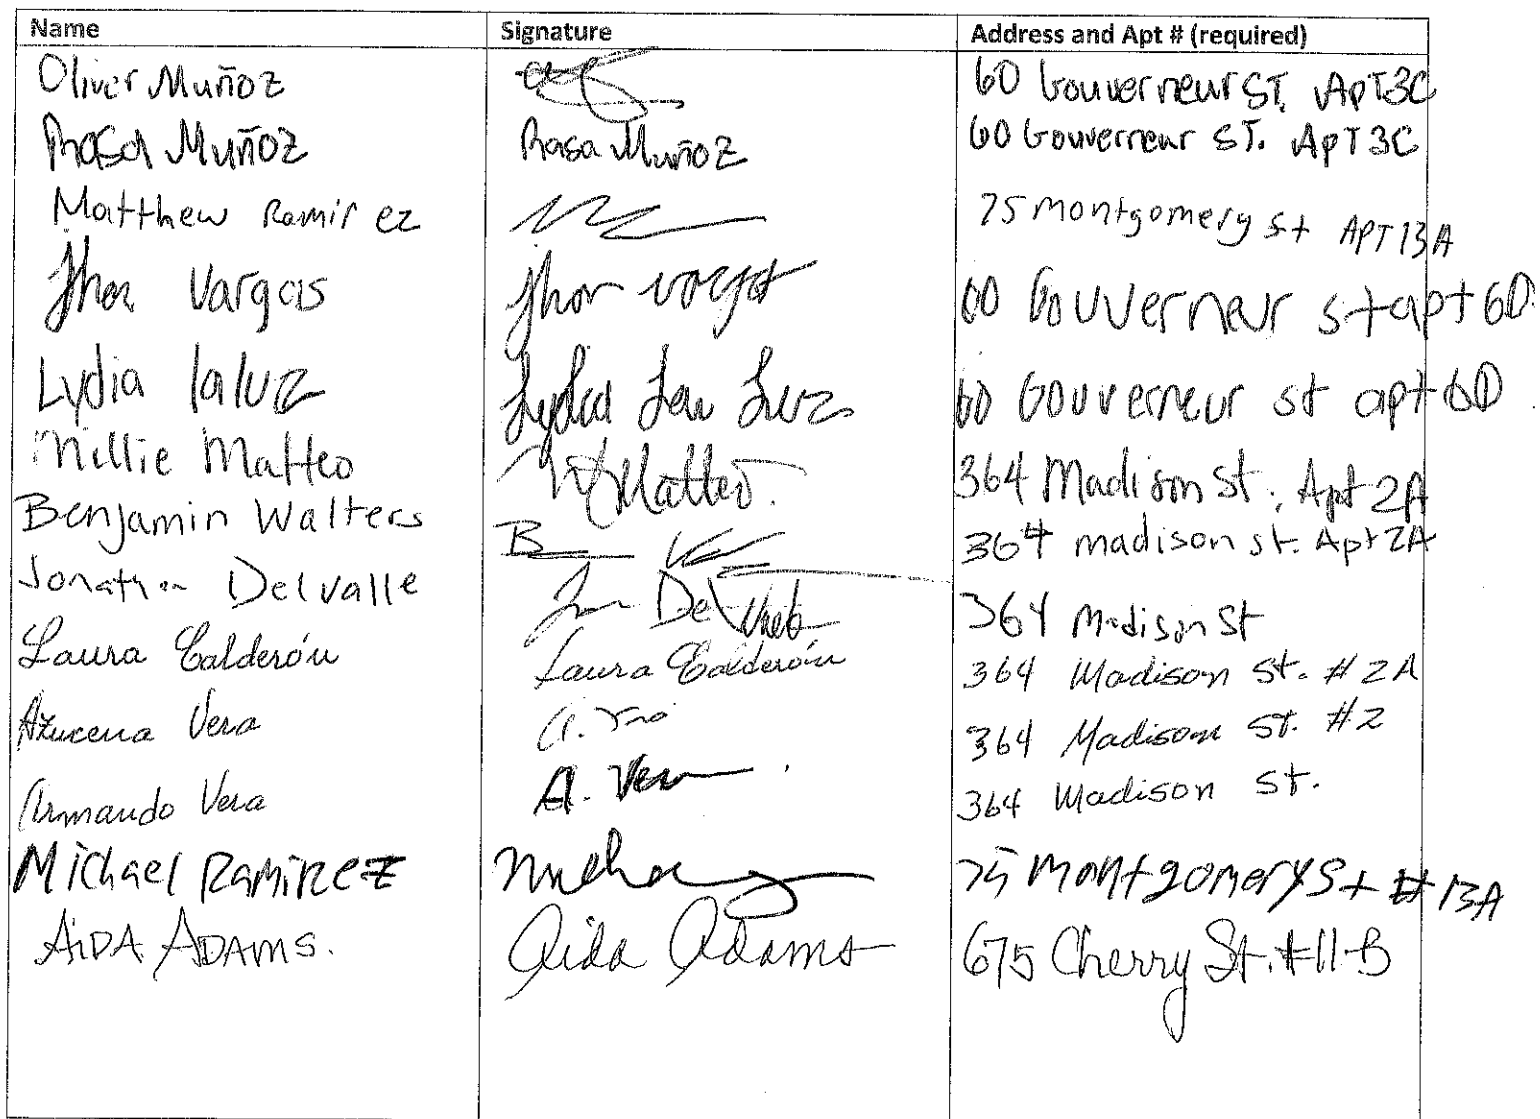 Name Signature Address and Apt # (required)
Oliver Muñoz 60 Gouverneur ST. ApT 3C
Rosa Muñoz Rosa Muñoz 60 Gouverneur ST. ApT 3C
Matthew Ramirez 75 Montgomery st APT 13A
Jhon Vargas Jhon 60 Gouverneur st apt 6D
Lydia laluz Lydia La Luz 60 Gouverneur st apt 6D
Millie Matteo Matteo. 364 Madison St. Apt 2A
Benjamin Walters B 364 madison st. Apt 2A
Jonathan Delvalle Del 364 Madison St
Laura Calderón Laura Calderón 364 Madison St. # 2A
Azucena Vera A. 364 Madison St. #2
Armando Vera A. Vera 364 Madison St.
Michael Ramirez 75 Montgomery St # 13A
AiDA ADAMS. Aida Adams 675 Cherry St. #11-B